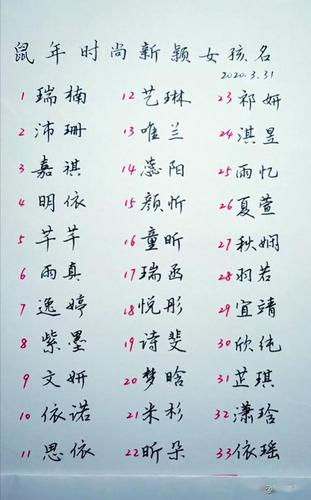 鼠年时尚新颖女孩名
2020.3.31
1 瑞楠
2 沛珊
3 嘉祺
4 明依
5 芊芊
6 雨真
7 逸婷
8 紫墨
9 文妍
10 依诺
11 思依
12 艺琳
13 唯兰
14 蕊阳
15 颜忻
16 童昕
17 瑞函
18 悦彤
19 诗斐
20 梦晗
21 米杉
22 昕朵
23 祁妍
24 淇昱
25 雨忆
26 夏萱
27 秋娴
28 羽若
29 宜靖
30 欣纯
31 芷琪
32 潇琀
33 依瑶